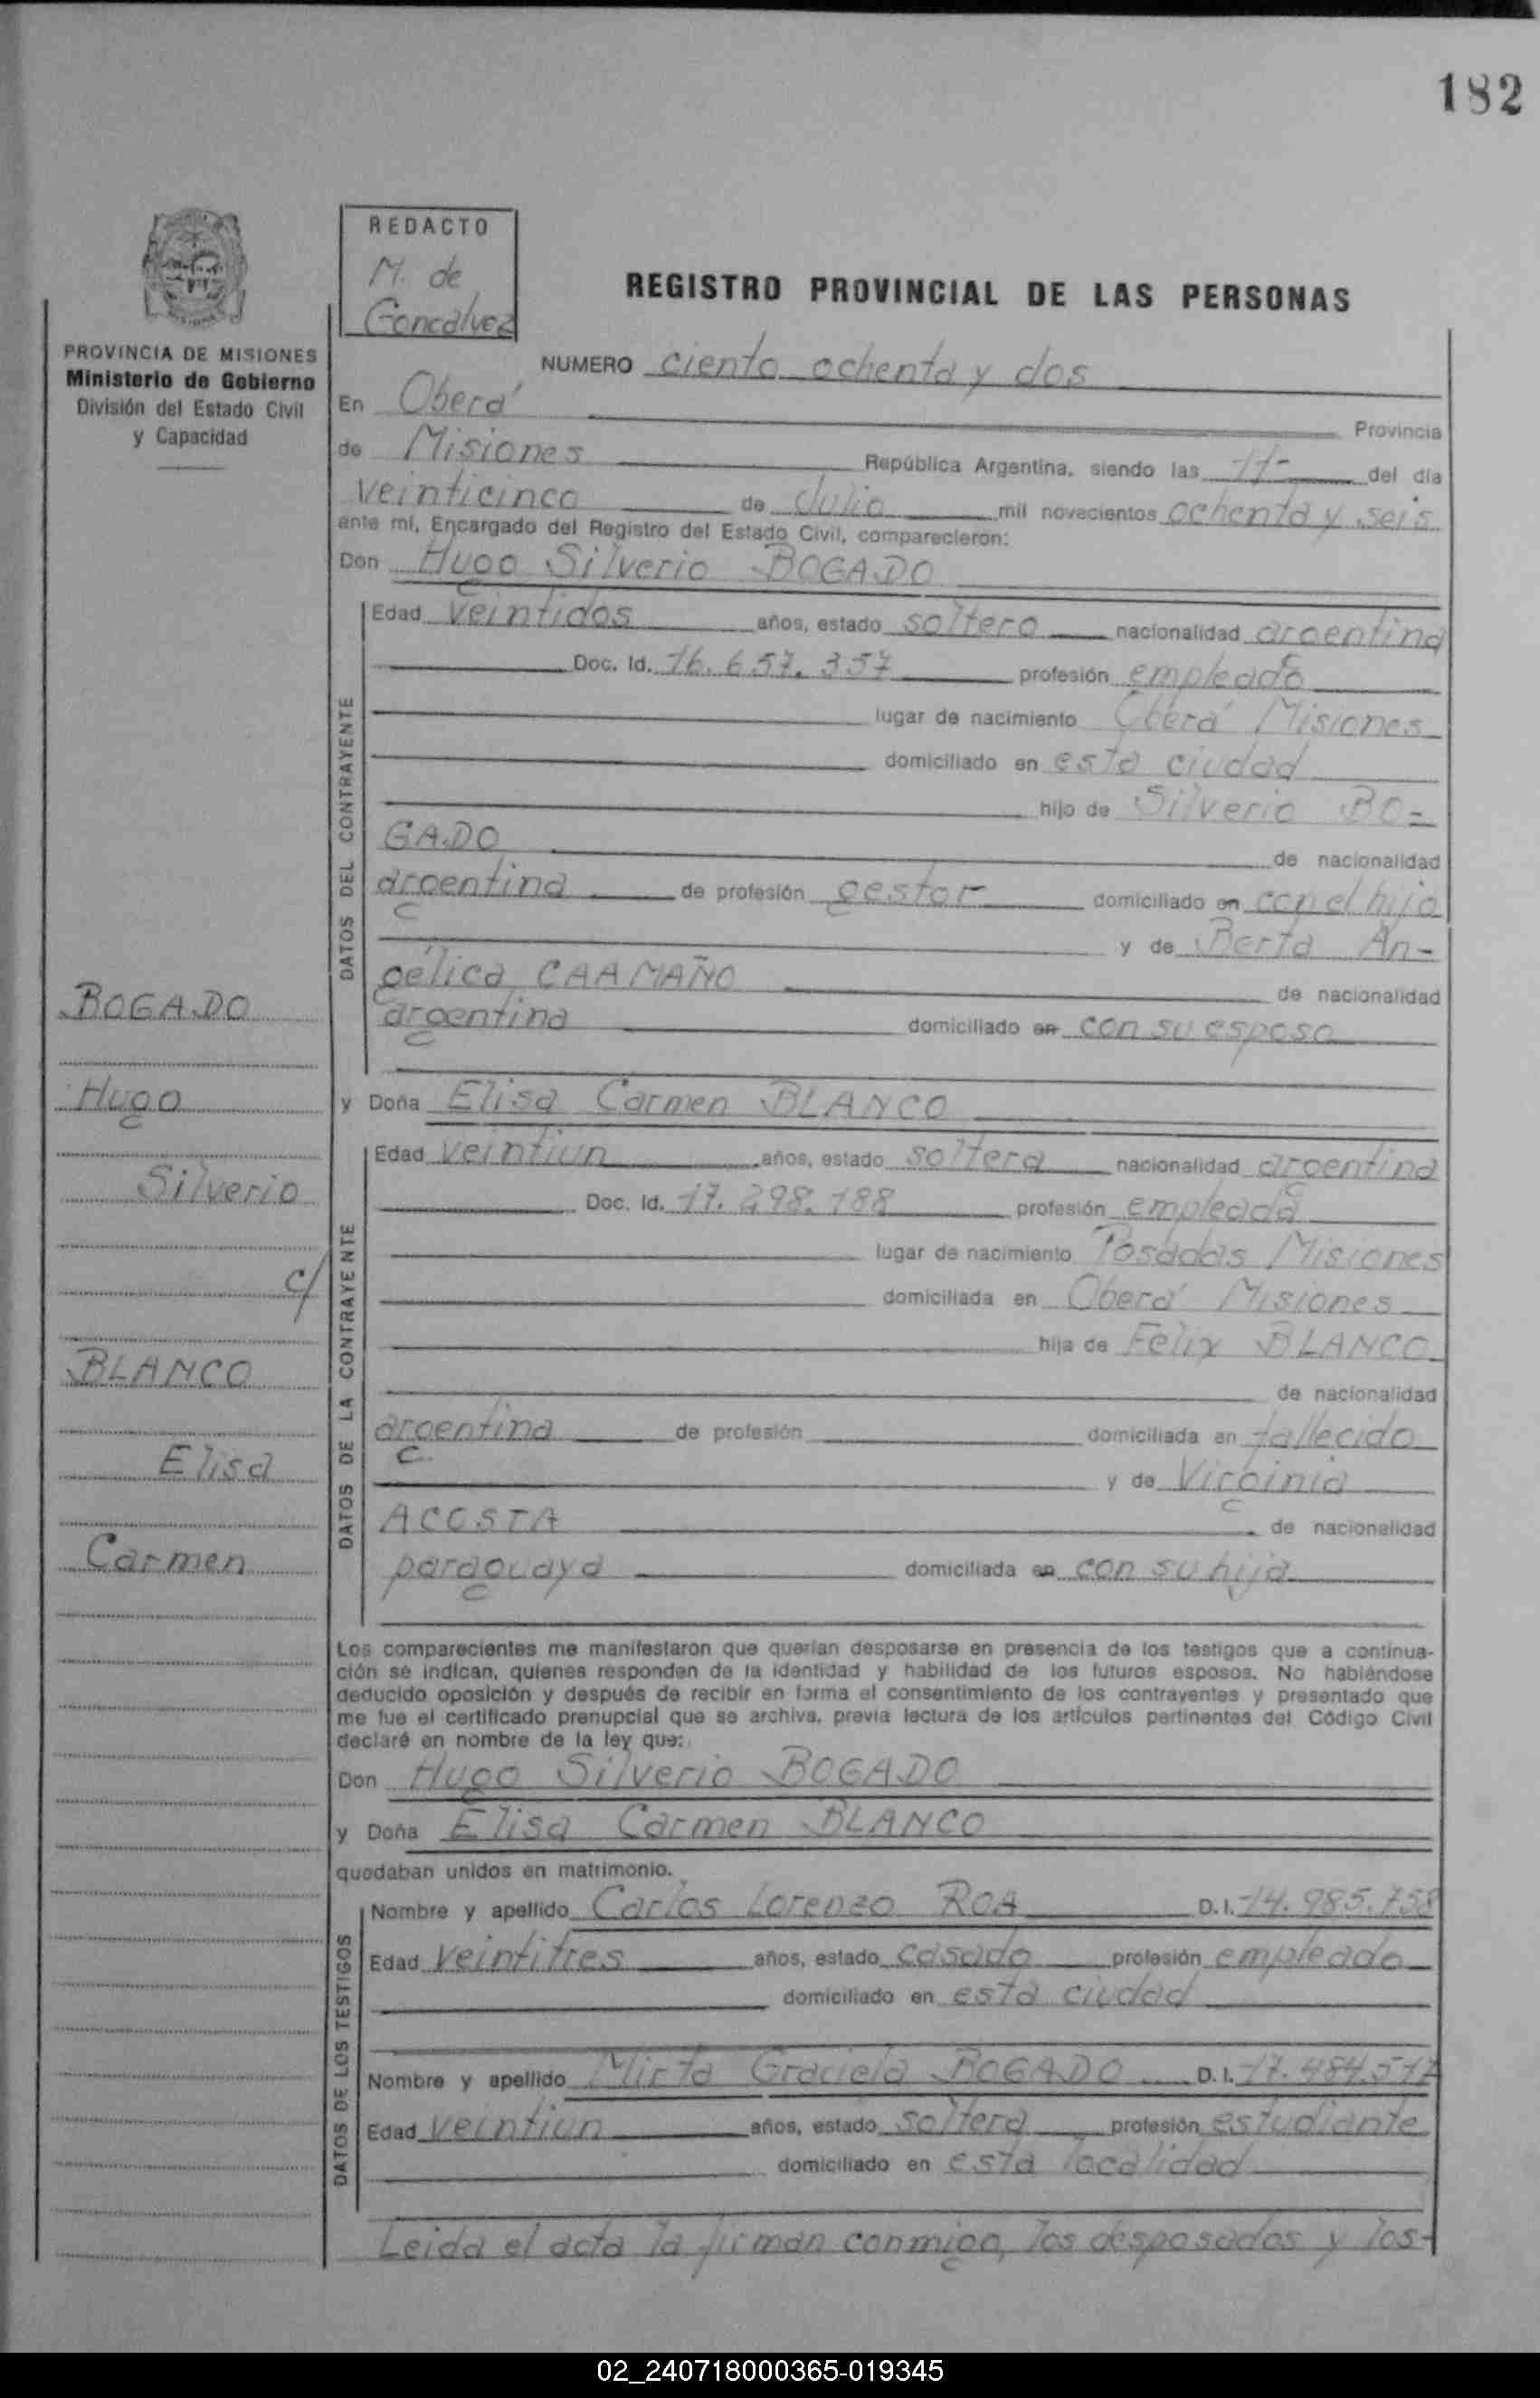 182
REDACTO
M. de
Goncalvez
REGISTRO PROVINCIAL DE LAS PERSONAS
PROVINCIA DE MISIONES
Ministerio de Gobierno
División del Estado Civil
y Capacidad
NUMERO ciento ochenta y dos
En Oberá Provincia
de Misiones República Argentina, siendo las 11- del día
veinticinco de Julio mil novecientos ochenta y seis
ante mí, Encargado del Registro del Estado Civil, comparecieron:
Don Hugo Silverio BOGADO
DATOS DEL CONTRAYENTE
Edad veintidos años, estado soltero nacionalidad argentina
Doc. Id. 16.657.357 profesión empleado
lugar de nacimiento Oberá Misiones
domiciliado en esta ciudad
hijo de Silverio BO=
GADO de nacionalidad
argentina de profesión gestor domiciliado en con el hijo
y de Berta An-
gélica CAAMAÑO de nacionalidad
argentina domiciliado en con su esposo
BOGADO
Hugo
Silverio
c/
BLANCO
Elisa
Carmen
y Doña Elisa Carmen BLANCO
DATOS DE LA CONTRAYENTE
Edad veintiun años, estado soltera nacionalidad argentina
Doc. Id. 17.298.188 profesión empleada
lugar de nacimiento Posadas Misiones
domiciliada en Oberá Misiones
hija de Felix BLANCO
de nacionalidad
argentina de profesión domiciliada en fallecido
y de Virginia
ACOSTA de nacionalidad
paraguaya domiciliada en con su hija
Los comparecientes me manifestaron que querían desposarse en presencia de los testigos que a continua-
ción se indican, quienes responden de la identidad y habilidad de los futuros esposos. No habiéndose
deducido oposición y después de recibir en forma el consentimiento de los contrayentes y presentado que
me fue el certificado prenupcial que se archiva, previa lectura de los artículos pertinentes del Código Civil
declaré en nombre de la ley que:
Don Hugo Silverio BOGADO
y Doña Elisa Carmen BLANCO
quedaban unidos en matrimonio.
DATOS DE LOS TESTIGOS
Nombre y apellido Carlos Lorenzo ROA D.I. 14.985.758
Edad veintitres años, estado casado profesión empleado
domiciliado en esta ciudad
Nombre y apellido Mirta Graciela BOGADO D.I. 17.484.517
Edad veintiun años, estado soltera profesión estudiante
domiciliado en esta localidad
Leida el acta la firman conmigo, los desposados y los
02_240718000365-019345